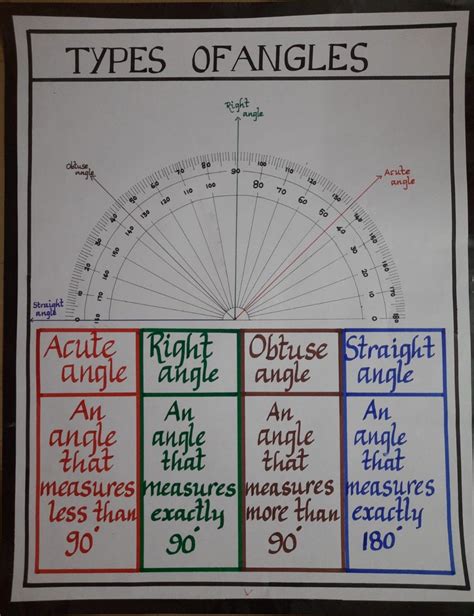 TYPES OF ANGLES
Right
angle
Obtuse
angle
Acute
angle
Straight
angle
90
80
70
100
Acute
angle
Right
angle
Obtuse
angle
Straight
angle
An
angle
that
measures
less than
90°
An
angle
that
measures
exactly
90°
An
angle
that
measures
more than
90°
An
angle
that
measures
exactly
180°